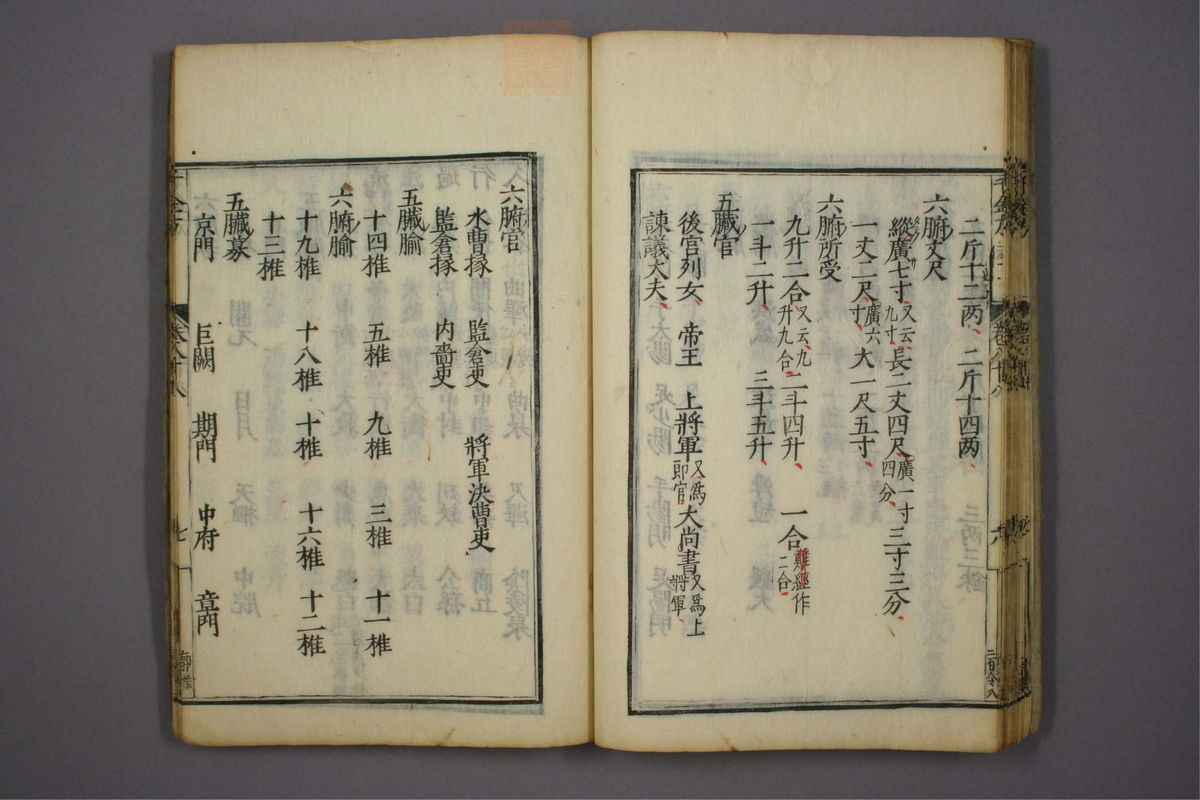 二斤十二两、二斤十四两、
六腑丈尺
縱廣七寸又云九寸、長二丈四尺、廣一寸四分、三寸三分、
一丈二尺、廣六寸、大一尺五寸、
六腑所受
九升二合、又云九升九合、二斗四升、一合難經作二合、
一斗二升、三斗五升、
五臓官
後宮列女、帝王 上將軍又爲即官大尚書又爲上將軍、
諫議大夫、
六腑官
水曹掾 監倉吏 將軍決曹吏
監倉掾 内嗇吏
五臓腧
十四椎 五椎 九椎 三椎 十一椎
六腑腧
十九椎 十八椎 十椎 十六椎 十二椎
十三椎
五臓募
京門 巨闕 期門 中府 章門
卷八十八
七